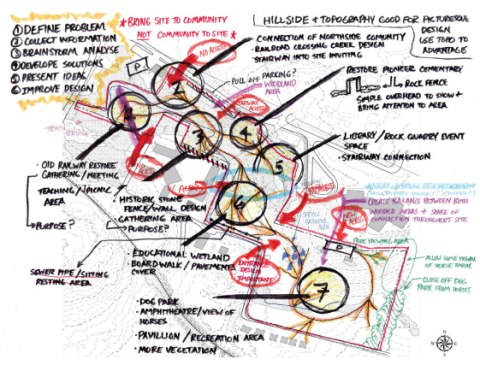 ① DEFINE PROBLEM
② COLLECT INFORMATION
③ BRAINSTORM, ANALYSE
④ DEVELOPE SOLUTIONS
⑤ PRESENT IDEAL
⑥ IMPROVE DESIGN
★ BRING SITE TO COMMUNITY
NOT COMMUNITY TO SITE ★
HILLSIDE + TOPOGRAPHY GOOD FOR PICTURESQUE
DESIGN
USE TOPO TO
ADVANTAGE
• CONNECTION OF NORTHSIDE COMUNITY
• RAILROAD CROSSING DESIGN
STAIRWAY INTO SITE INVITING
P
NO ACCESS
PULL OFF PARKING?
WOODLAND
AREA
• RESTORE PIONEER CEMENTARY
ROCK FENCE
SIMPLE OVERHEAD TO SHOW +
BRING ATTENTION TO AREA
1
2
3
4
5
6
7
• LIBRARY / ROCK QUARRY EVENT
SPACE
• STAIRWAY CONNECTION
• OLD RAILWAY RESTORE
GATHERING / MEETING
TEACHING / PICNIC
AREA
PURPOSE?
• HISTORIC STONE
FENCE/WALL DESIGN
• GATHERING AREA
PURPOSE?
CREATE BALANCE BETWEEN BOTH
WOODED AREAS + SENSE OF
CONNECTION THROUGHOUT SITE
P
PARK VIEWING AREA
• EDUCATIONAL WETLAND
• BOARDWALK / PAVEMENTS
COVER
SEWER PIPE / SITTING
RESTING AREA
ENTRANCE
DESIGN
IMPORTANT
ALLOW SOME VIEW
OF HORSE FARM
CLOSE OFF DOG
PARK FROM HORSES
• DOG PARK
• AMPHITHEATRE / VIEW OF
HORSES
• PAVILLION / RECREATION AREA
• MORE VEGETATION •